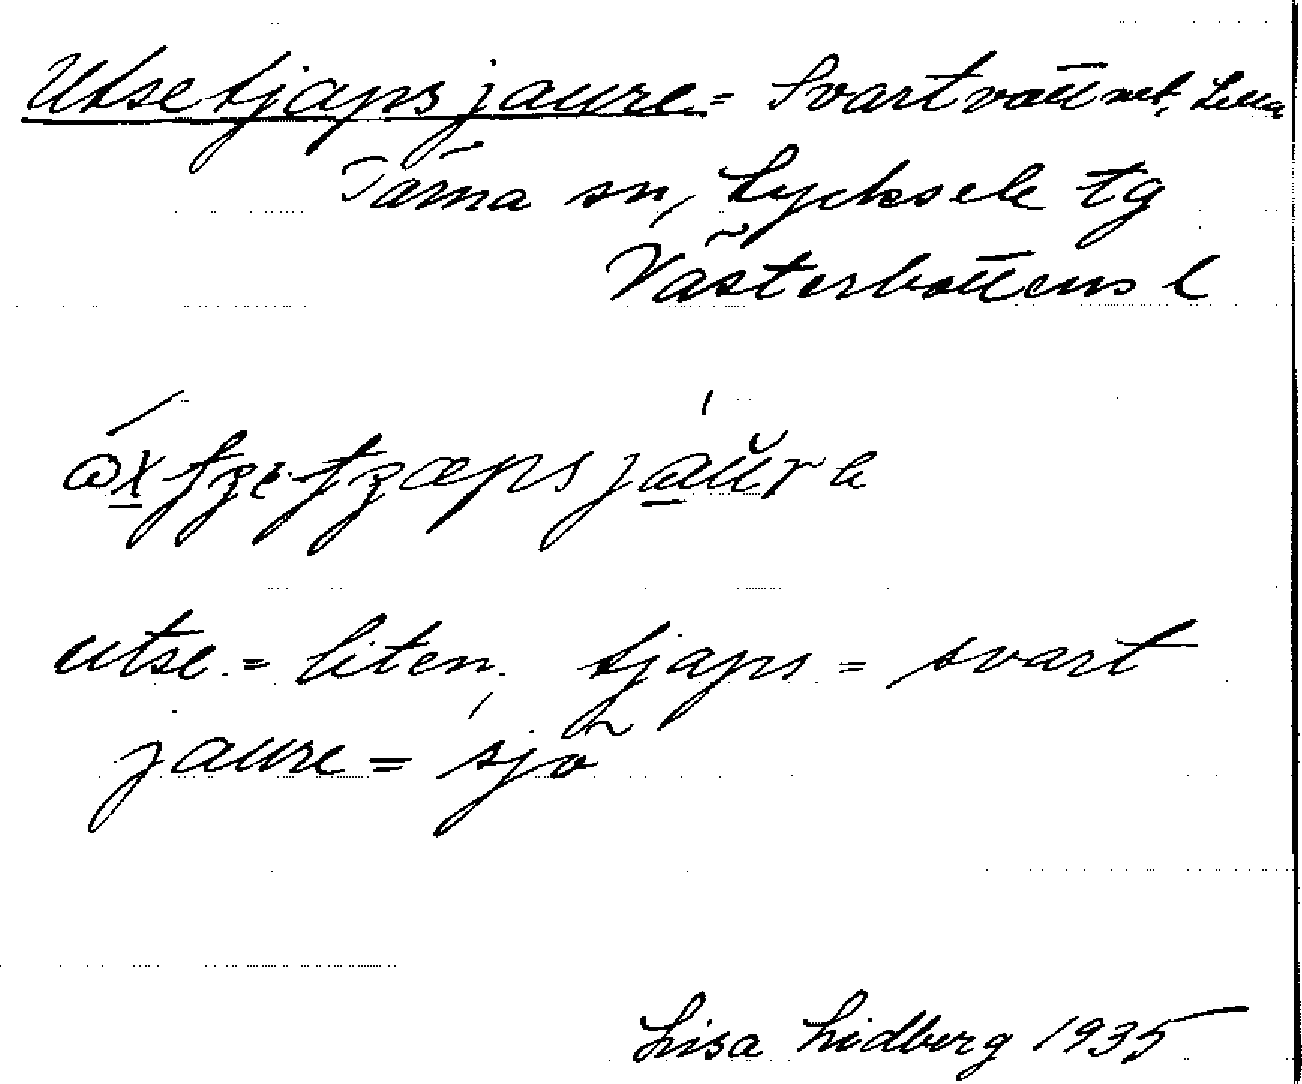 Utsetjapsjaure = Svartvattnet, Lilla
Tärna sn, Lycksele tg
Västerbottens l
utse = liten, tjaps = svart
jaure = sjö
Lisa Lidberg 1935